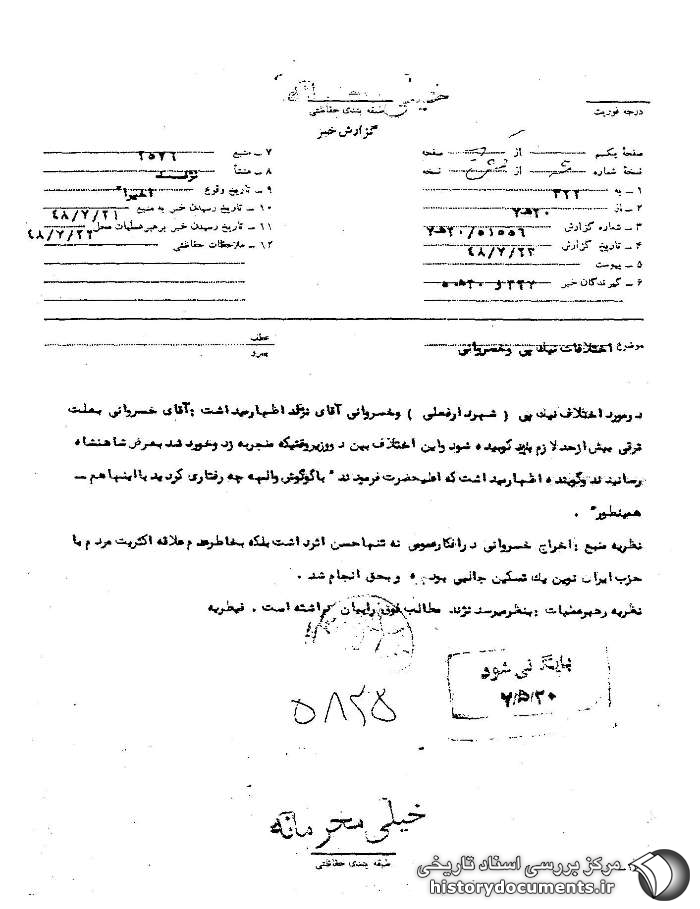 خیلی محرمانه
طبقه بندی حفاظتی
گزارش خبر
درجه فوریت
صفحه یکم از صفحه
نسخه شماره از نسخه
۱ – به ۳۲۲
۲ – از ۲۰ﻫ۷
۳ – شماره گزارش ۲۰ﻫ۷/۵۱۵۵۶
۴ – تاریخ گزارش ۴۸/۷/۲۳
۵ – پیوست
۶ – گیرندگان خبر
۷ – منبع ۲۵۷۶
۸ – منشأ نژند
۹ – تاریخ وقوع اخیراً
۱۰ – تاریخ رسیدن خبر به منبع ۴۸/۷/۲۱
۱۱ – تاریخ رسیدن خبر برهبر عملیات محل ۴۸/۷/۲۲
۱۲ – ملاحظات حفاظتی
موضوع اختلافات نیک پی و خسروانی
عطف
پیرو
در مورد اختلاف نیک پی ( شهردار فعلی ) و خسروانی آقای نژند اظهار میداشت : آقای خسروانی بعلت
ترقی بیش از حد لازم باید کوبیده شود و این اختلاف بین دو وزیر وقتیکه منجر به زد و خورد شد بعرض شاهنشاه
رسانیدند و گوینده اظهار میداشت که اعلیحضرت فرمودند " با گوگوش و الهه چه رفتاری کردید با اینها هم –
همینطور " .
نظریه منبع : اخراج خسروانی در افکار عمومی نه تنها حسن اثر داشت بلکه بخاطر عدم علاقه اکثریت مردم با
حزب ایران نوین یک تسکین جالبی بوده و بحق انجام شد .
نظریه رهبر عملیات : بنظر میرسد نژند مطالب فوق را بیان داشته است . قیطریه
بایگانی شود
۷/۵/۲۰
۵۸۲۵
خیلی محرمانه
طبقه بندی حفاظتی
مرکز بررسی اسناد تاریخی
historydocuments.ir